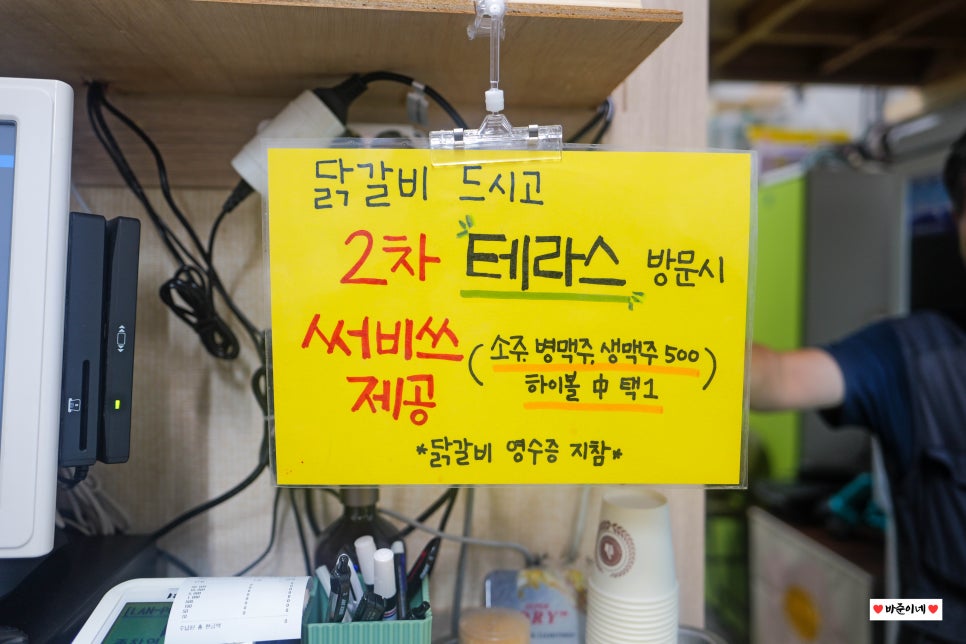 닭갈비 드시고
2차 테라스 방문시
써비쓰 제공
(소주, 병맥주, 생맥주 500
하이볼 中 택1)
*닭갈비 영수증 지참*
♥바준이네♥